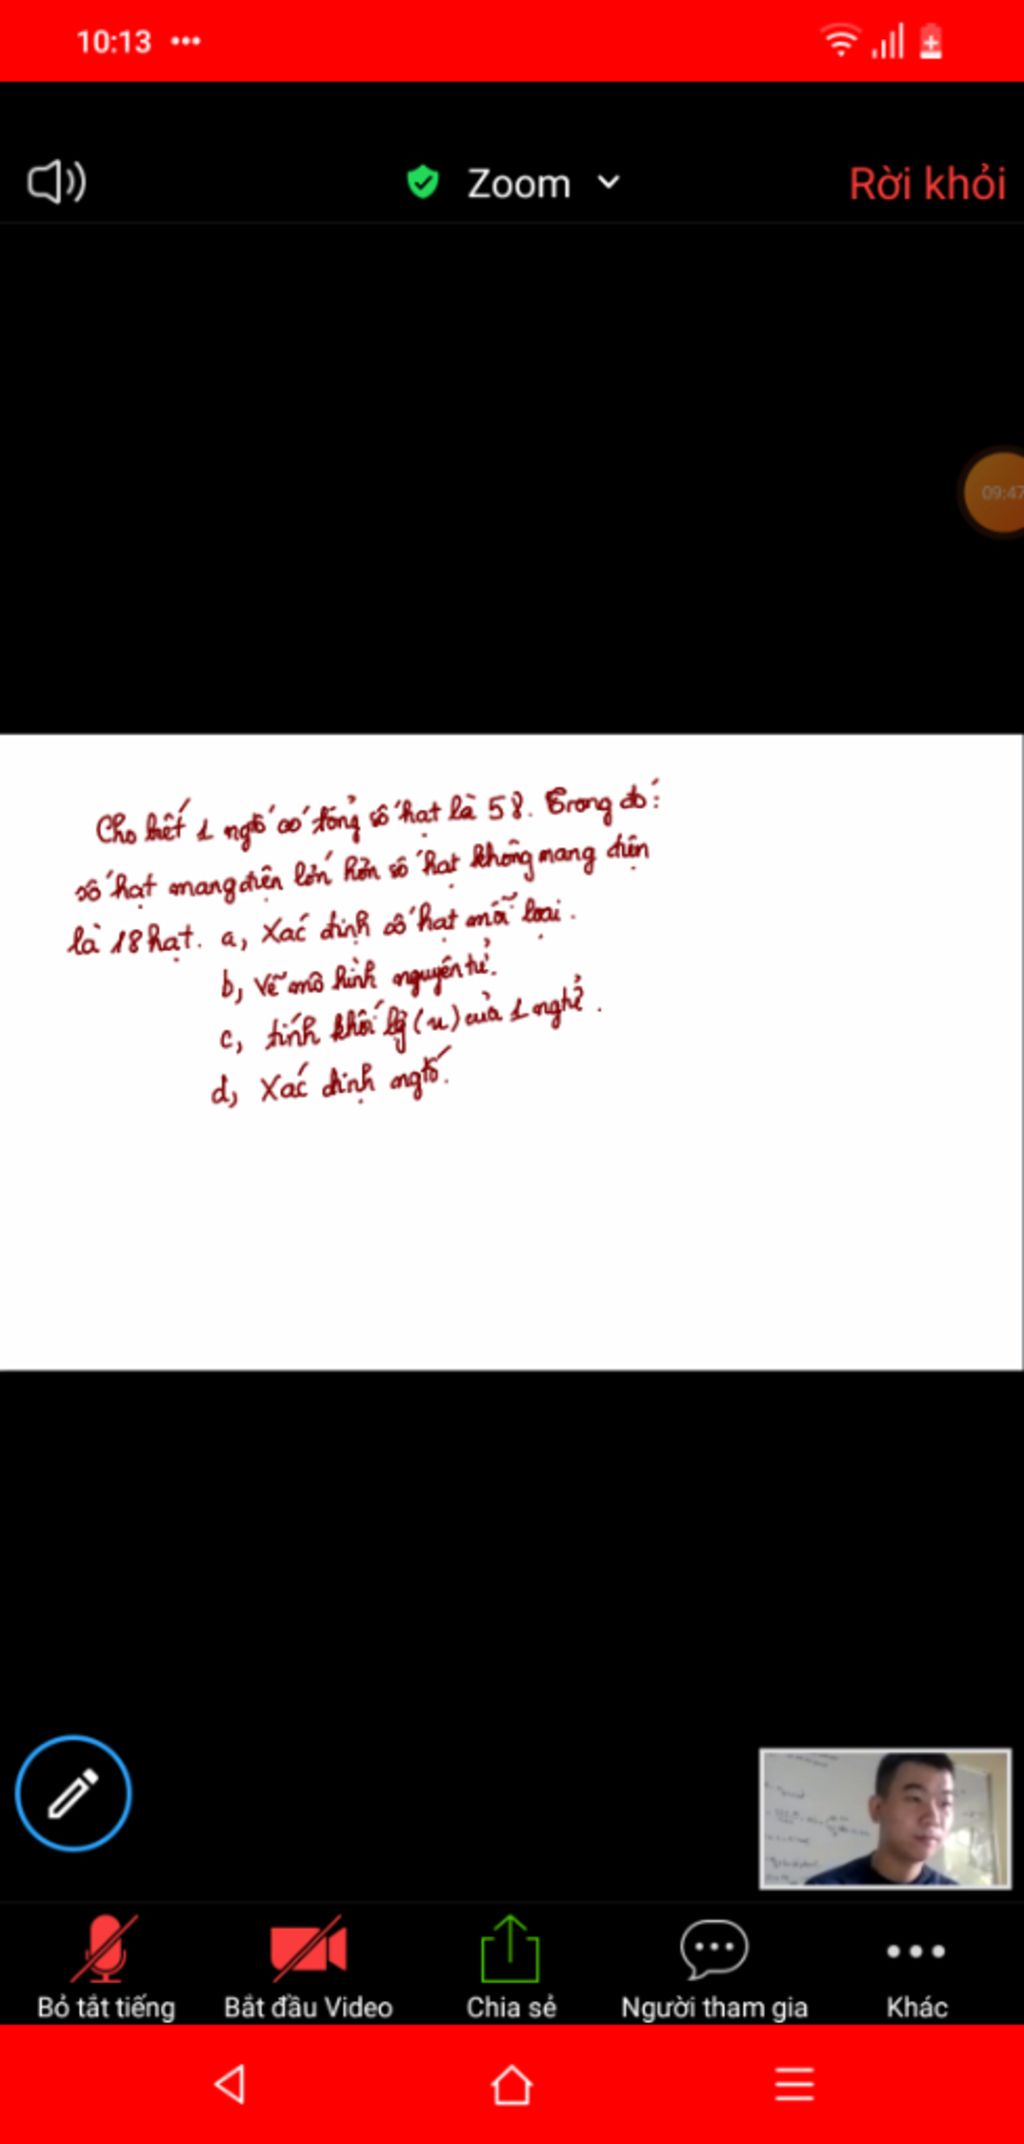 10:13
Zoom
Rời khỏi
09:47
Cho biết 1 ngtố có tổng số hạt là 58. Trong đó:
số hạt mang điện lớn hơn số hạt không mang điện
là 18 hạt. a, Xác định số hạt mỗi loại.
b, Vẽ mô hình nguyên tử.
c, tính khối lg (u) của 1 ngtử.
d, Xác định ngtố.
Bỏ tắt tiếng
Bắt đầu Video
Chia sẻ
Người tham gia
Khác